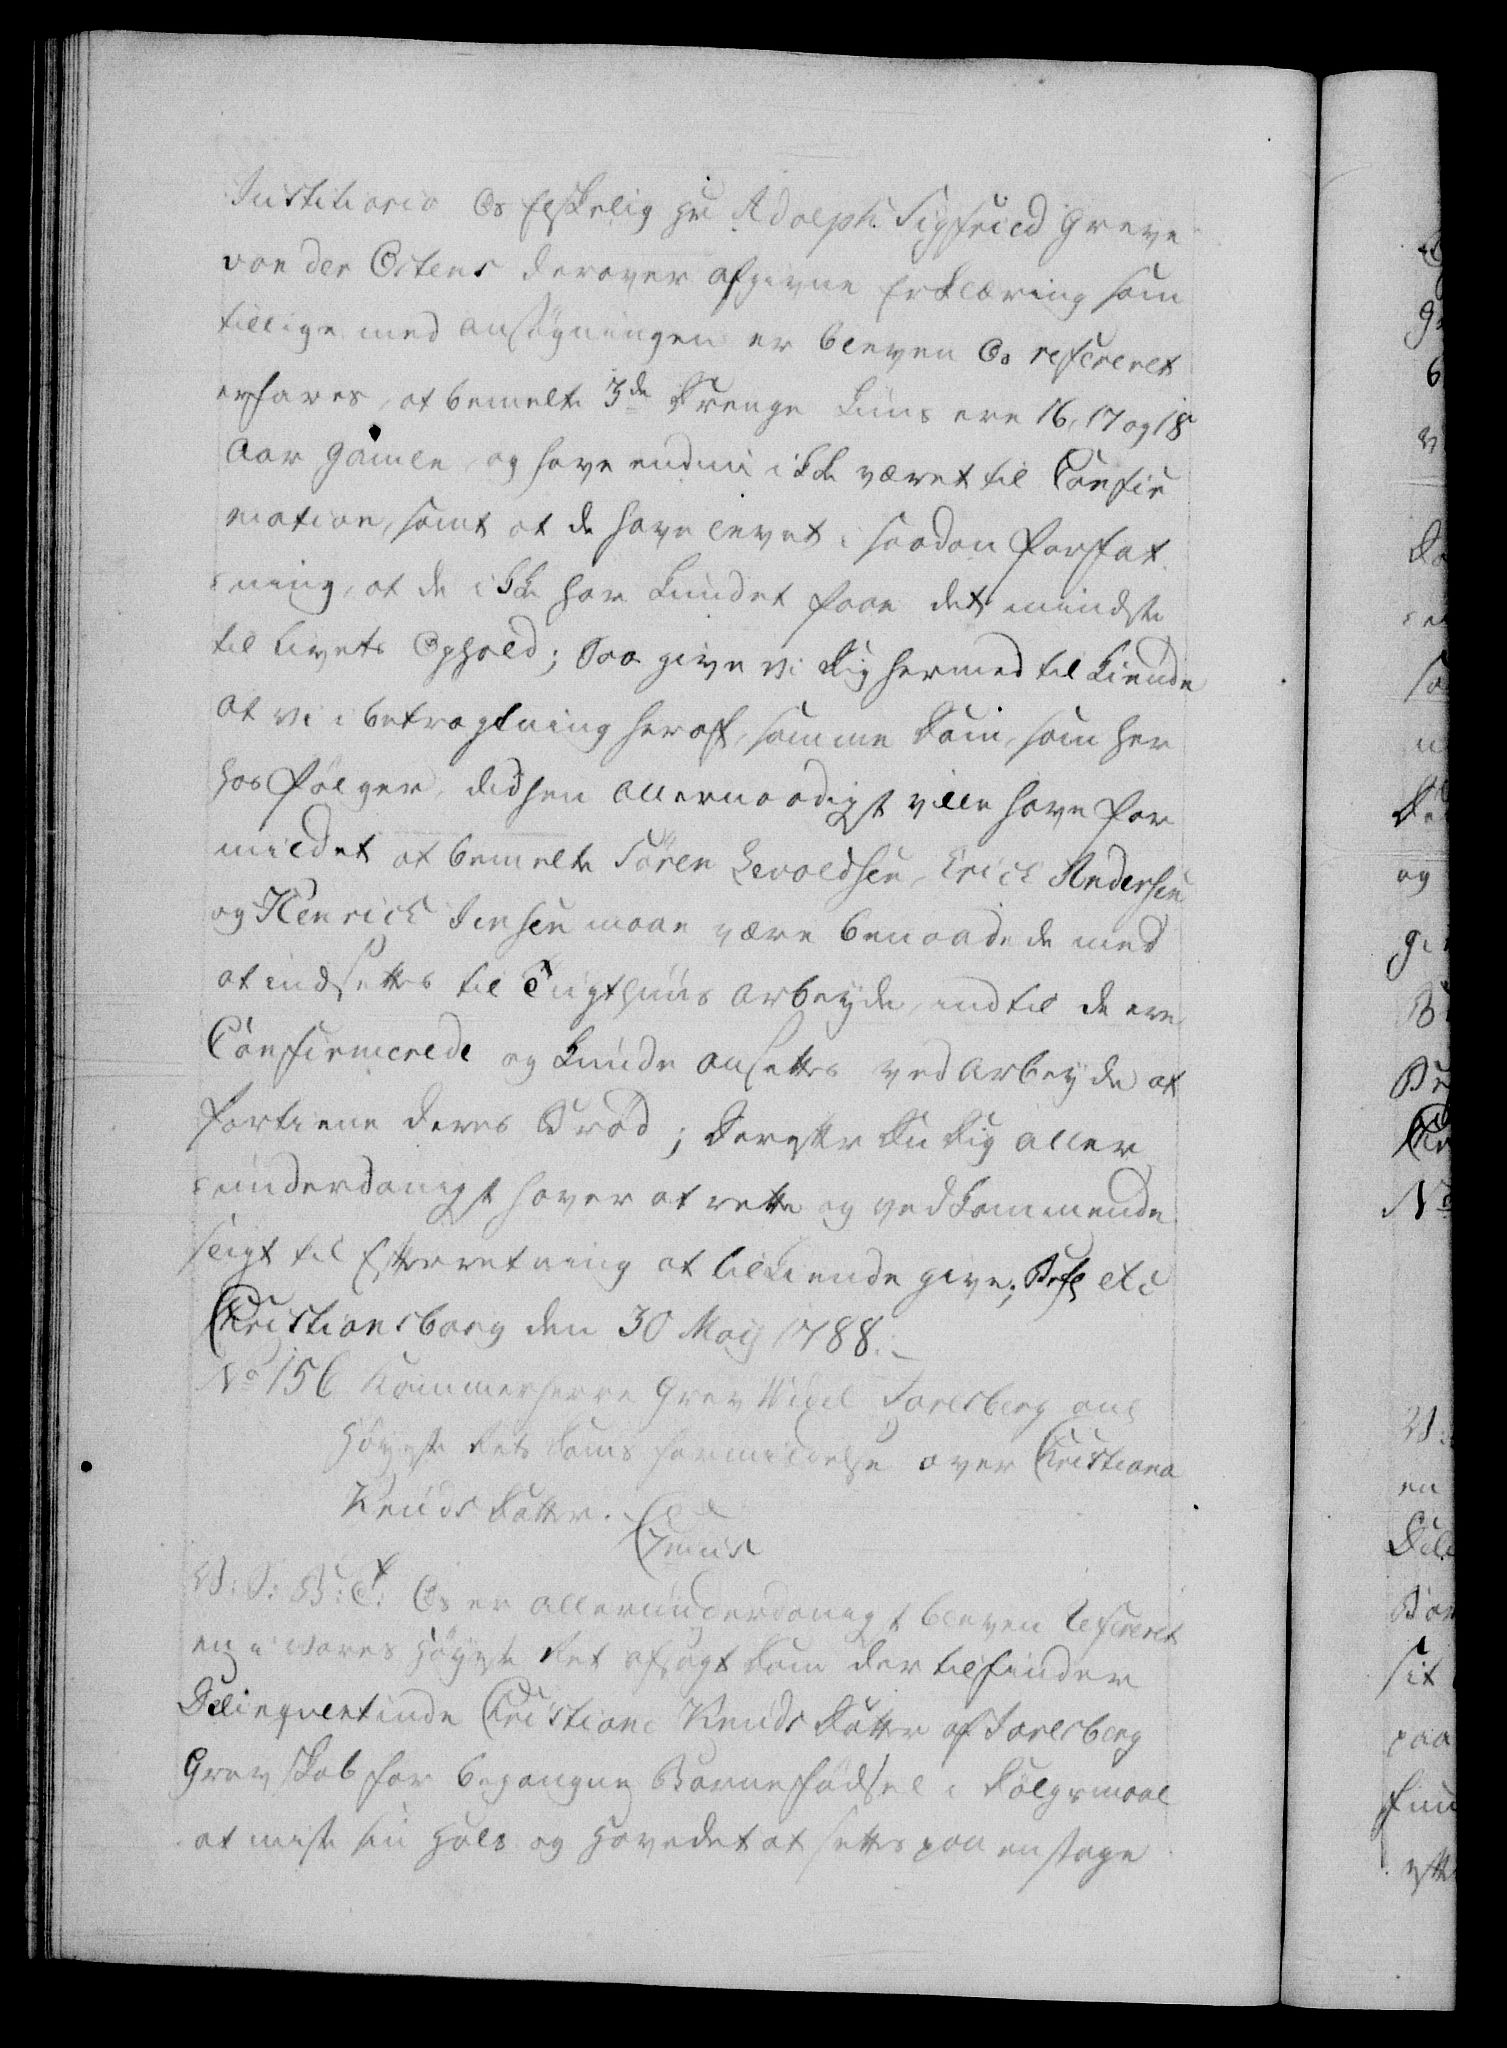 Justitiario Os Elskelig Hr Adolph Sigfried Greve
von der Ostens derover afgivne Erklæring som
tillige med ansøgningen er bleven Os refereret
erfares, at bemelte 3de Drenge kuns ere 16, 17 og 18
Aar gamle, og have endnu ikke været til Confir
mation, samt at de have levet i saadan Forfat
ning, at de ikke har kundet faae det mindste
til Livets Ophold; Saa give vi Dig hermed til kiende
at vi i betragtning heraf, samme Dom, som her
hos følger, didhen allernaadigst ville have for
mildet at bemelte Søren Levoldsen, Erich Andersen
og Henrich Jensen maae være benaadede med
at indsettes til Tugthuus Arbeyde, indtil de ere
Confirmerede og kunde ansettes ved Arbeyde at
fortiene deres Brød; Derefter Du Dig aller
underdanigst haver at rette og vedkommende
sligt til Efterretning at tilkiende give; Befl etc
Christiansborg den 30 Maij 1788.
No 156 Kammerherre Grev Wedel Jarlsberg ang
Høyeste Rets Doms formildelse over Christiana
Knuds Datter.
V: S: G: T: Os er allerunderdanigst bleven refereret
en i Vores Høyeste Ret afsagt Dom der tilfinder
Delinquentinde Christiane Knuds Datter af Jarlsberg
Grevskab for begangne Barnefødsel i Dølgsmaal
at miste sin Hals og Hovedet at settes paa en stage